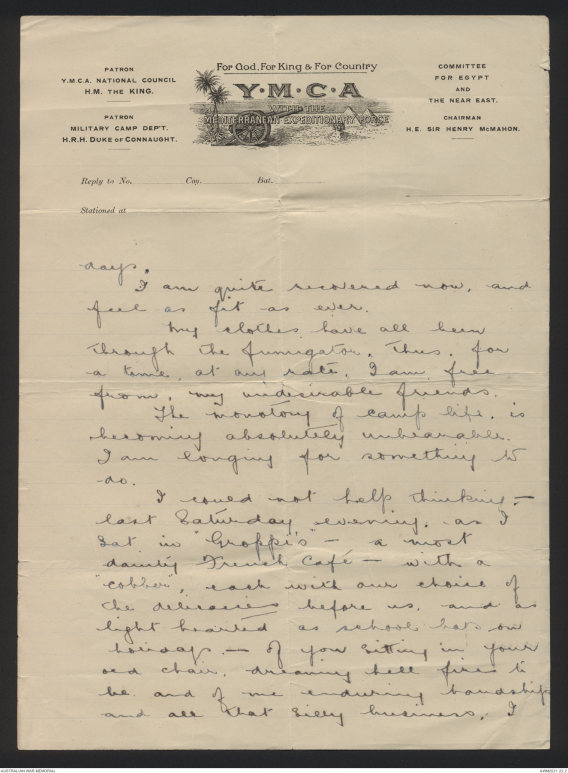 PATRON
Y.M.C.A. NATIONAL COUNCIL
H.M. THE KING.
PATRON
MILITARY CAMP DEP'T.
H.R.H. DUKE OF CONNAUGHT.
For God, For King & For Country
Y·M·C·A
WITH THE
MEDITERRANEAN EXPEDITIONARY FORCE
COMMITTEE
FOR EGYPT
AND
THE NEAR EAST.
CHAIRMAN
H.E. SIR HENRY McMAHON.
Reply to No. Coy. Bat.
Stationed at
days.
I am quite recovered now, and
feel as fit as ever.
My clothes have all been
through the fumigator. Thus, for
a time, at any rate, I am free
from, my undesirable friends.
The monotony of camp life, is
becoming absolutely unbearable.
I am longing for something to
do.
I could not help thinking, —
last Saturday evening, as I
sat in "Groppi's" — a most
dainty French Café — with a
"cobber", each with our choice of
the delicacies before us, and as
light hearted as school on
holidays — of you sitting in your
old chair, dreaming hell fires to
be and of me enduring hardships
and all that silly business. I
AUSTRALIAN WAR MEMORIAL